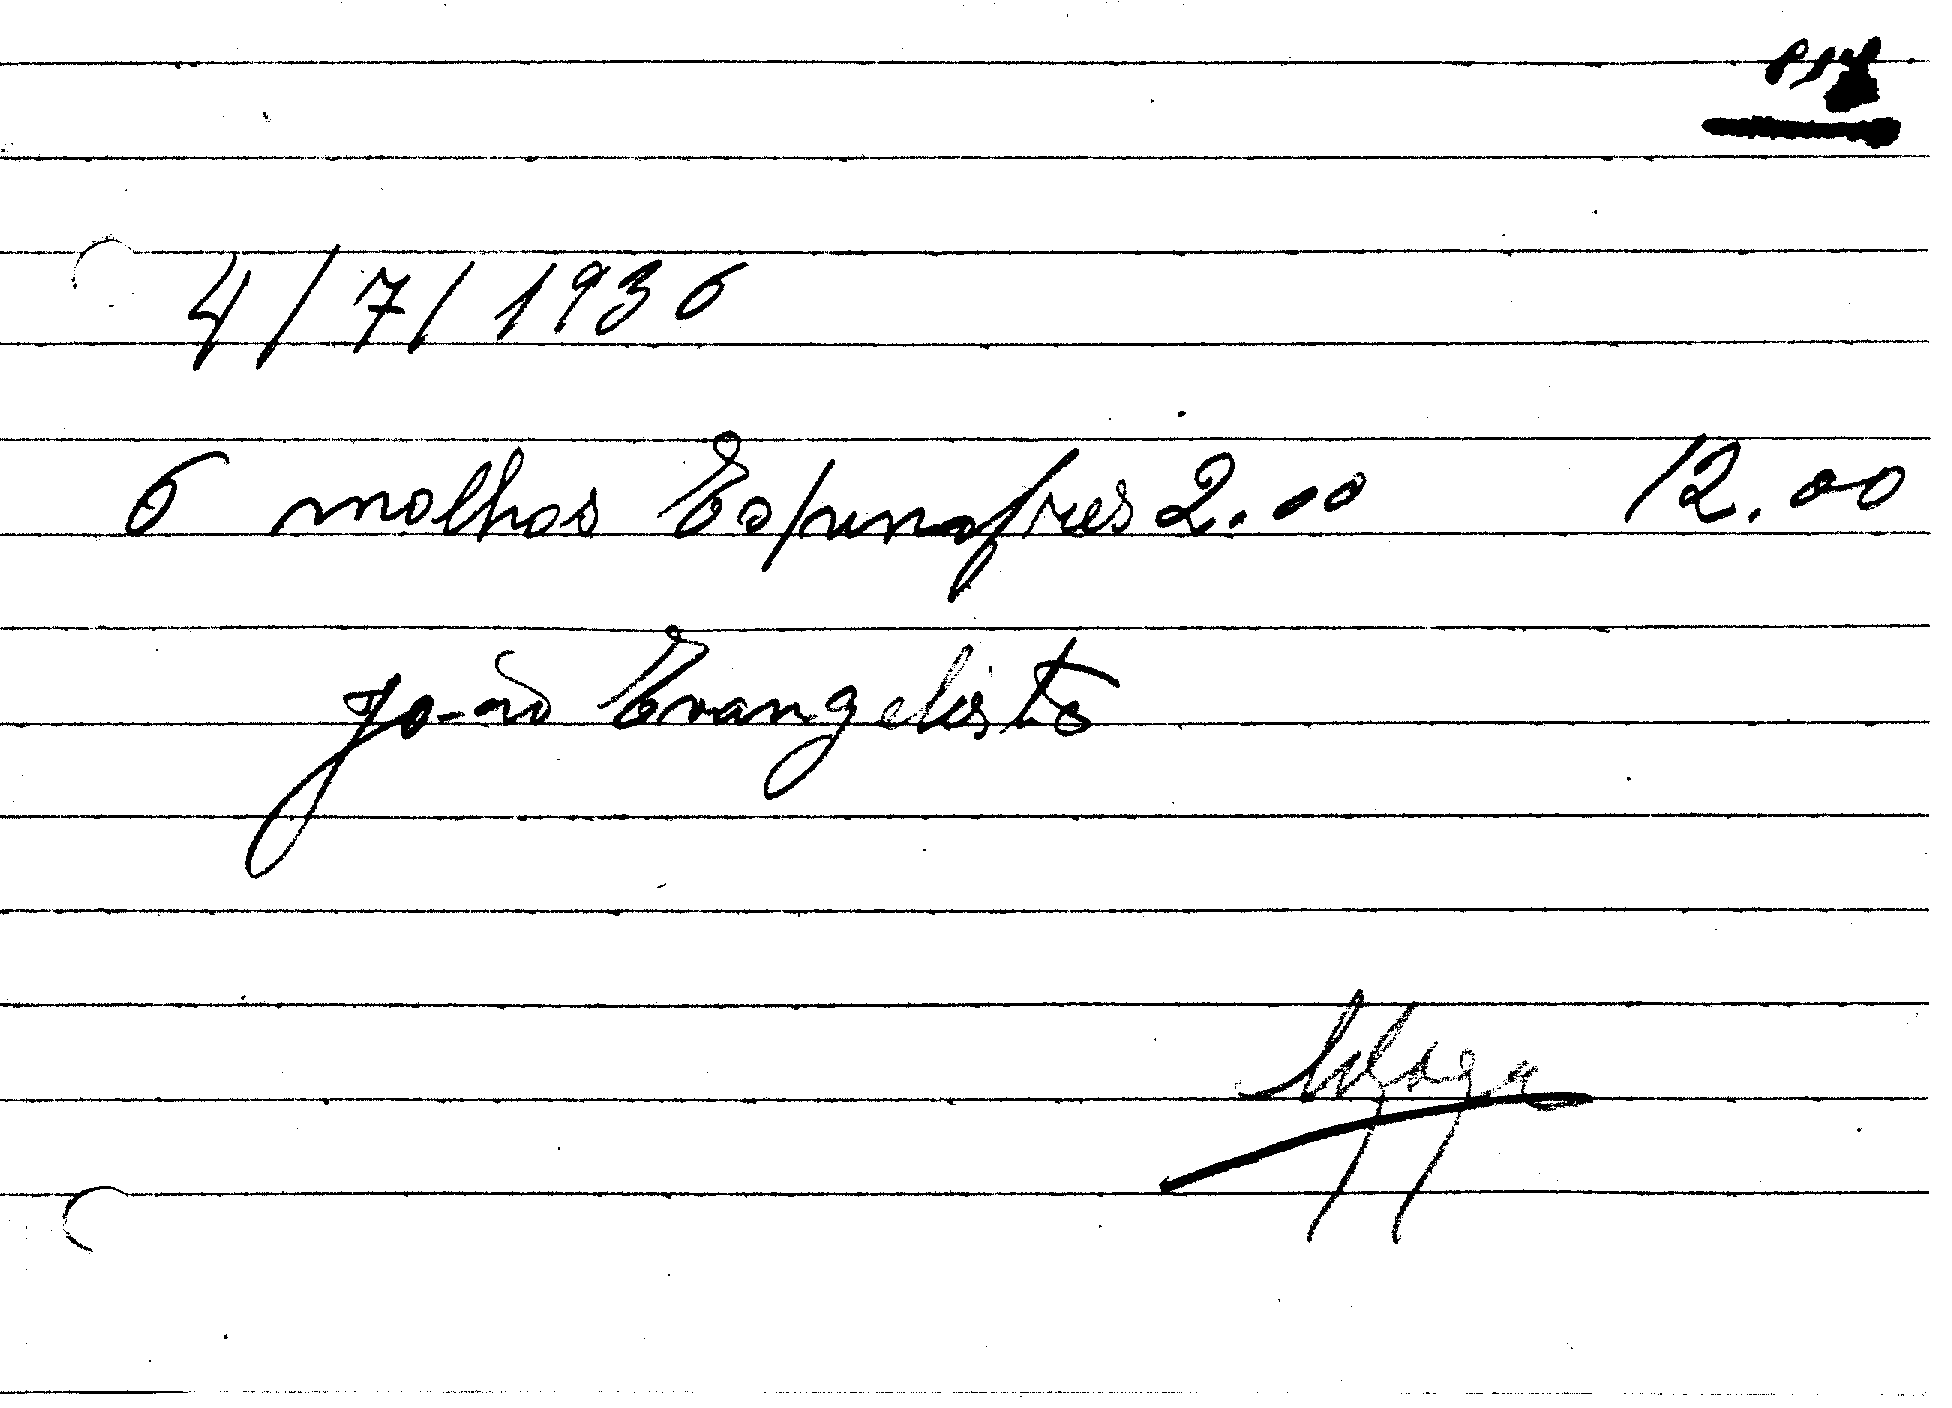 4/7/1936
6 molhos Espinafres 2.00 12.00
João Evangelisto